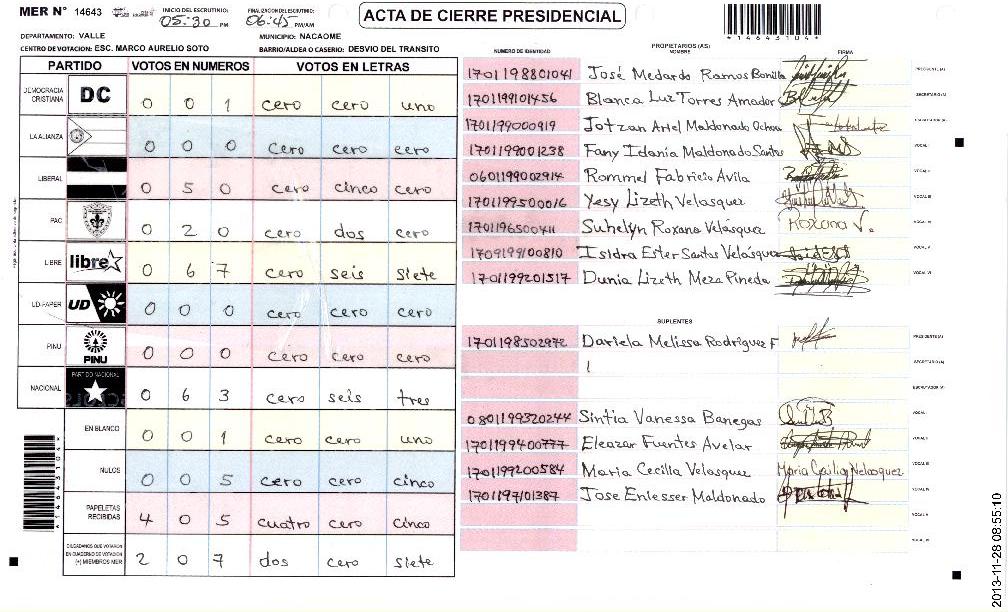 MER N° 14643
INICIO DEL ESCRUTINIO: 05:30 PM
FINALIZACION ESCRUTINIO: 06:45 PM/AM
ACTA DE CIERRE PRESIDENCIAL
*14643104*
DEPARTAMENTO: VALLE
MUNICIPIO: NACAOME
CENTRO DE VOTACION: ESC. MARCO AURELIO SOTO
BARRIO/ALDEA O CASERIO: DESVIO DEL TRANSITO
PARTIDO VOTOS EN NUMEROS VOTOS EN LETRAS
DEMOCRACIA CRISTIANA DC 0 0 1 cero cero uno
LA ALIANZA 0 0 0 cero cero cero
LIBERAL 0 5 0 cero cinco cero
PAC 0 2 0 cero dos cero
LIBRE libre 0 6 7 cero seis siete
UD-FAPER UD 0 0 0 cero cero cero
PINU PINU 0 0 0 cero cero cero
NACIONAL PARTIDO NACIONAL 0 6 3 cero seis tres
EN BLANCO 0 0 1 cero cero uno
NULOS 0 0 5 cero cero cinco
PAPELETAS RECIBIDAS 4 0 5 cuatro cero cinco
CIUDADANOS QUE VOTARON EN CUADERNO DE VOTACION (+) MIEMBROS MER 2 0 7 dos cero siete
*14643104*
PROPIETARIOS (AS)
NUMERO DE IDENTIDAD NOMBRE FIRMA
1701198801041 José Medardo Ramos Bonilla PRESIDENTE (A)
1701199101456 Blanca Luz Torres Amador SECRETARIO (A)
1701199000919 Jotzan Ariel Maldonado Ochoa ESCRUTADOR (A)
1701199001238 Fany Idania Maldonado Santos VOCAL
0601199002914 Rommel Fabricio Avila VOCAL II
1701199500016 Yesy Lizeth Velasquez VOCAL III
1701196500411 Suhelyn Roxana Velásquez Roxana V. VOCAL IV
1709199100810 Isidra Ester Santos Velásquez VOCAL V
1701199201517 Dunia Lizeth Meza Pineda VOCAL VI
SUPLENTES
1701198502972 Dariela Melissa Rodríguez F PRESIDENTE (A)
SECRETARIO (A)
ESCRUTADOR (A)
0801199320244 Sintia Vanessa Banegas VOCAL
1701199400777 Eleazar Fuentes Avelar VOCAL II
1701199200584 Maria Cecilia Velasquez Maria Cecilia Velasquez VOCAL III
1701197101387 Jose Enlesser Maldonado VOCAL IV
VOCAL V
VOCAL VI
2013-11-28 08:55:10